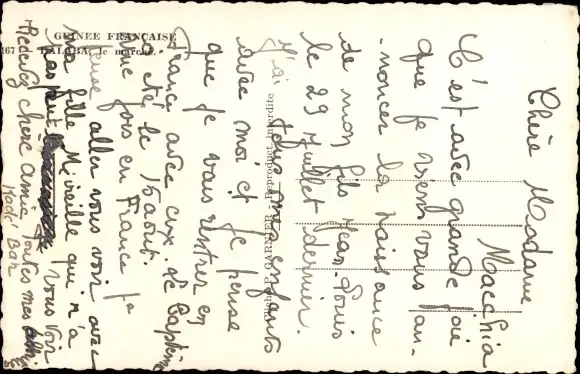 GUINEE FRANÇAISE
167 DALABA, le marché.
Chère Madame
Macchia
C'est avec grande joie
que je viens vous an-
-noncer la naissance
de mon fils Jean-Louis
le 29 Juillet dernier.
J'ai tous mes enfants
avec moi et je pense
que je vais rentrer en
France avec eux. Le baptême
a été le 15 août.
Une fois en France je
pense aller vous voir avec
ma fille Mireille qui n'a
pas pu vous voir
Recevez chère amie toutes mes